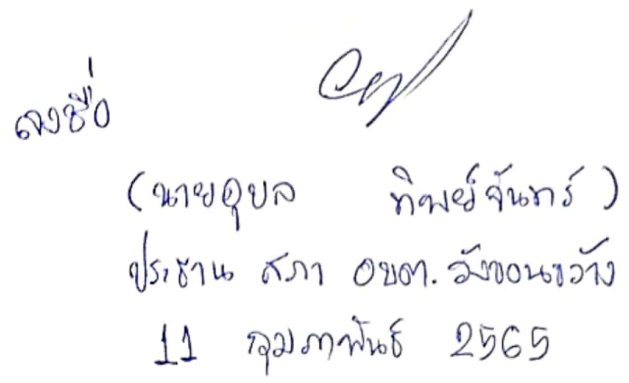 ลงชื่อ
(นายอุบล ทิพย์จันทร์)
ประธาน สภา อบต. วังขอนขว้าง
11 กุมภาพันธ์ 2565